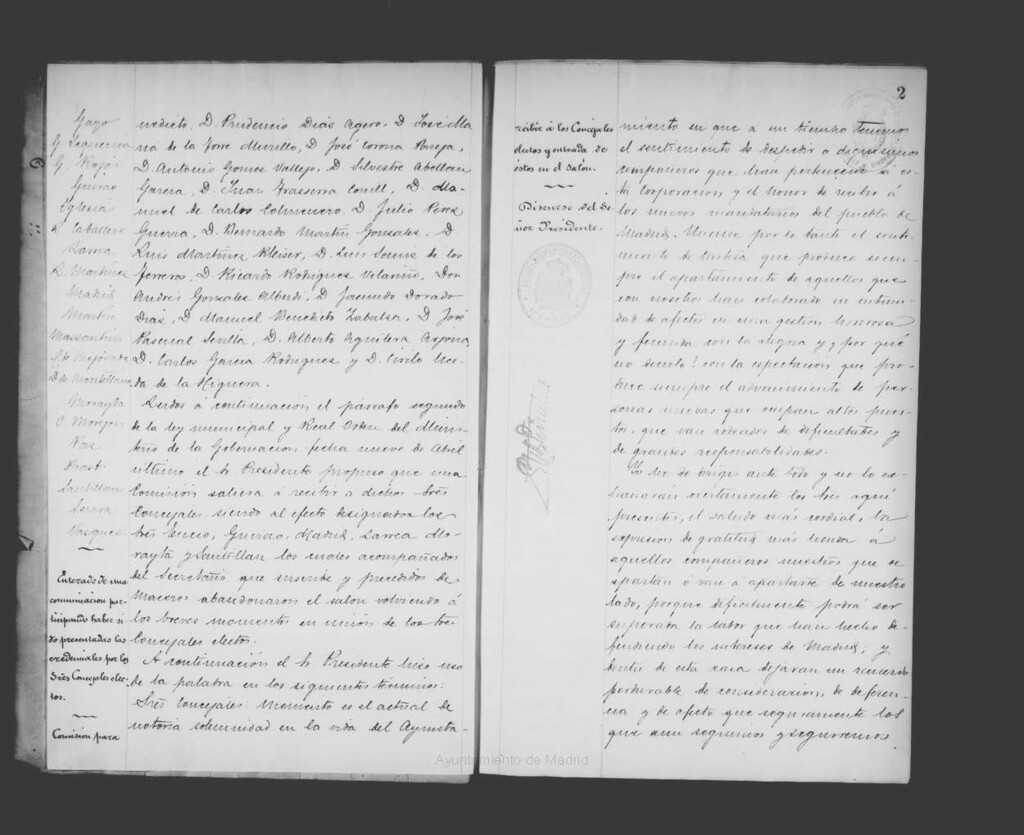 Gayo
G
G. Rojo
Guirao
Iglesias
L. Caballero
Larrea
L. Martínez
Madrid
Martín
Mazzantini
D. de Montellano
Morayta
O.
Prast
Santillán
Senra
Vázquez
Enterado de una
comunicación par-
ticipando haber si
do presentadas las
credenciales por los
Sres Concejales elec-
tos.
Comisión para
nedicto, D. Prudencio Díaz Agero, D. José Ma
ría de la Torre Murillo, D. José Corona Pareja,
D. Antonio Gómez Vallejo, D. Silvestre Abellán
García, D. Juan Fraserra Conill, D. Ma-
nuel de Carlos Colmenero, D. Julio Pérez
Guerra, D. Bernardo Martín González, D.
Luis Martínez Kleiser, D. Luis de los
Terreros, D. Ricardo Rodríguez Vilariño, Don
Andrés González Alberdi, D. Jacundo Dorado
Díaz, D. Manuel Benedicto Zabalza, D. José
Pascual Sevilla, D. Alberto Aguilera Arjona,
D. Carlos García Rodríguez y D. Cirilo
da de la Higuera.
Leídos á continuación el párrafo segundo
de la ley municipal y Real Orden del Minis-
terio de la Gobernación fecha nueve de Abril
último el Sr Presidente propuso que una
Comisión saliera á recibir a dichos Sres
Concejales siendo al efecto designados los
Sres Encio, Guirao, Madrid, Larrea Mo-
rayta y Santillán los cuales acompañados
del Secretario que suscribe y precedidos de
Maceros abandonaron el salón volviendo á
los breves momentos en unión de los Sres
Concejales electos.
A continuación el Sr Presidente hizo uso
de la palabra en los siguientes términos:
Sres Concejales: Momento es el actual de
notoria solemnidad en la vida del Ayunta-
2
recibir á los Concejales
electos y entrada de
éstos en el Salón.
Discurso del Se-
ñor Presidente.
miento en que a un tiempo tenemos
el sentimiento de despedir a dignísimos
compañeros que han pertenecido á es-
ta Corporación, y el honor de recibir á
los nuevos mandatarios del pueblo de
Madrid. Únense por lo tanto el senti-
miento de tristeza que produce siem-
pre el apartamiento de aquellos que
con nosotros han colaborado en intimi-
dad de afectos en una gestión honrosa
y fecunda con la alegría y ¿por qué
no decirlo? con la expectación que pro-
duce siempre el advenimiento de per-
sonas nuevas que ocupan altos pues-
tos, que van rodeados de dificultades y
de grandes responsabilidades.
se dirige ante todo y no lo ex-
trañarán ciertamente los Sres aquí
presentes, el saludo más cordial, la
expresión de gratitud más honda á
aquellos compañeros nuestros que se
apartan ó van a apartarse de nuestro
lado, porque difícilmente podrá ser
superada la labor que han hecho de-
fendiendo los intereses de Madrid; y
dentro de esta casa dejarán un recuerdo
perdurable de consideración, de deferen-
cia y de afecto que seguramente los
que aun seguimos y seguiremos
Ayuntamiento de Madrid